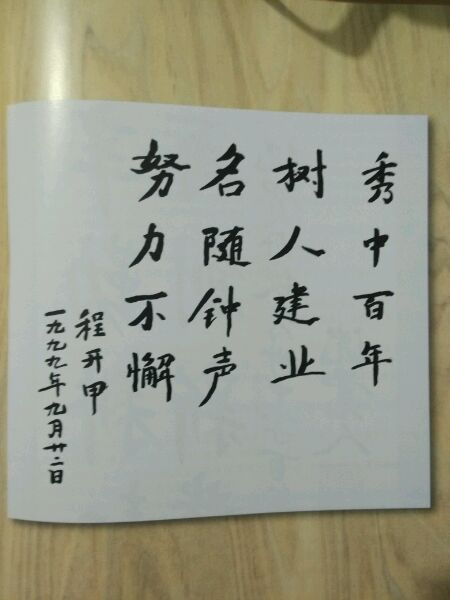 秀中百年
树人建业
名随钟声
努力不懈
程开甲
一九九九年九月廿二日